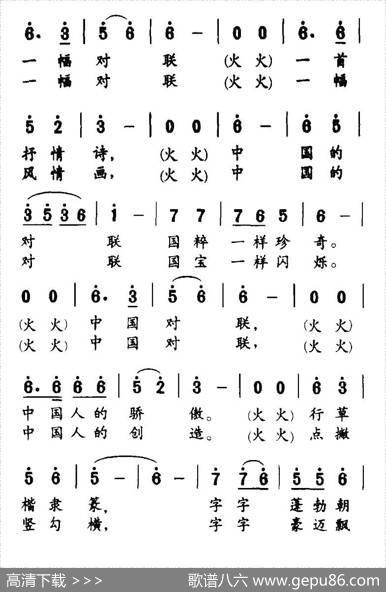 6. 3 | 5 6 | 6 - | 0 0 | 6. 6 |
一幅 对 联 (火 火) 一首
一幅 对 联 (火 火) 一幅
5 2 | 3 - | 0 0 | 6 - | 6 5 |
抒情 诗, (火 火) 中 国的
风情 画, (火 火) 中 国的
3 5 3 6 | i - | 7 7 | 7 6 5 |
对 联 国粹 一样珍奇。
对 联 国宝 一样闪烁。
0 0 | 6. 3 | 5 6 | 6 - | 0 0 |
(火 火) 中国 对 联, (火 火)
(火 火) 中国 对 联, (火 火)
6. 6 6 6 | 5 2 | 3 - | 0 0 | 6 3 |
中国人的 骄 傲。 (火 火) 行草
中国人的 创 造。 (火 火) 点撇
5 6 | 5 - | - - | 7 7 6 | 5 5 6 |
楷隶 篆, 字字 蓬勃朝
竖勾 横, 字字 豪迈飘
高清下载 >>> 歌谱八六 www.gepu86.com